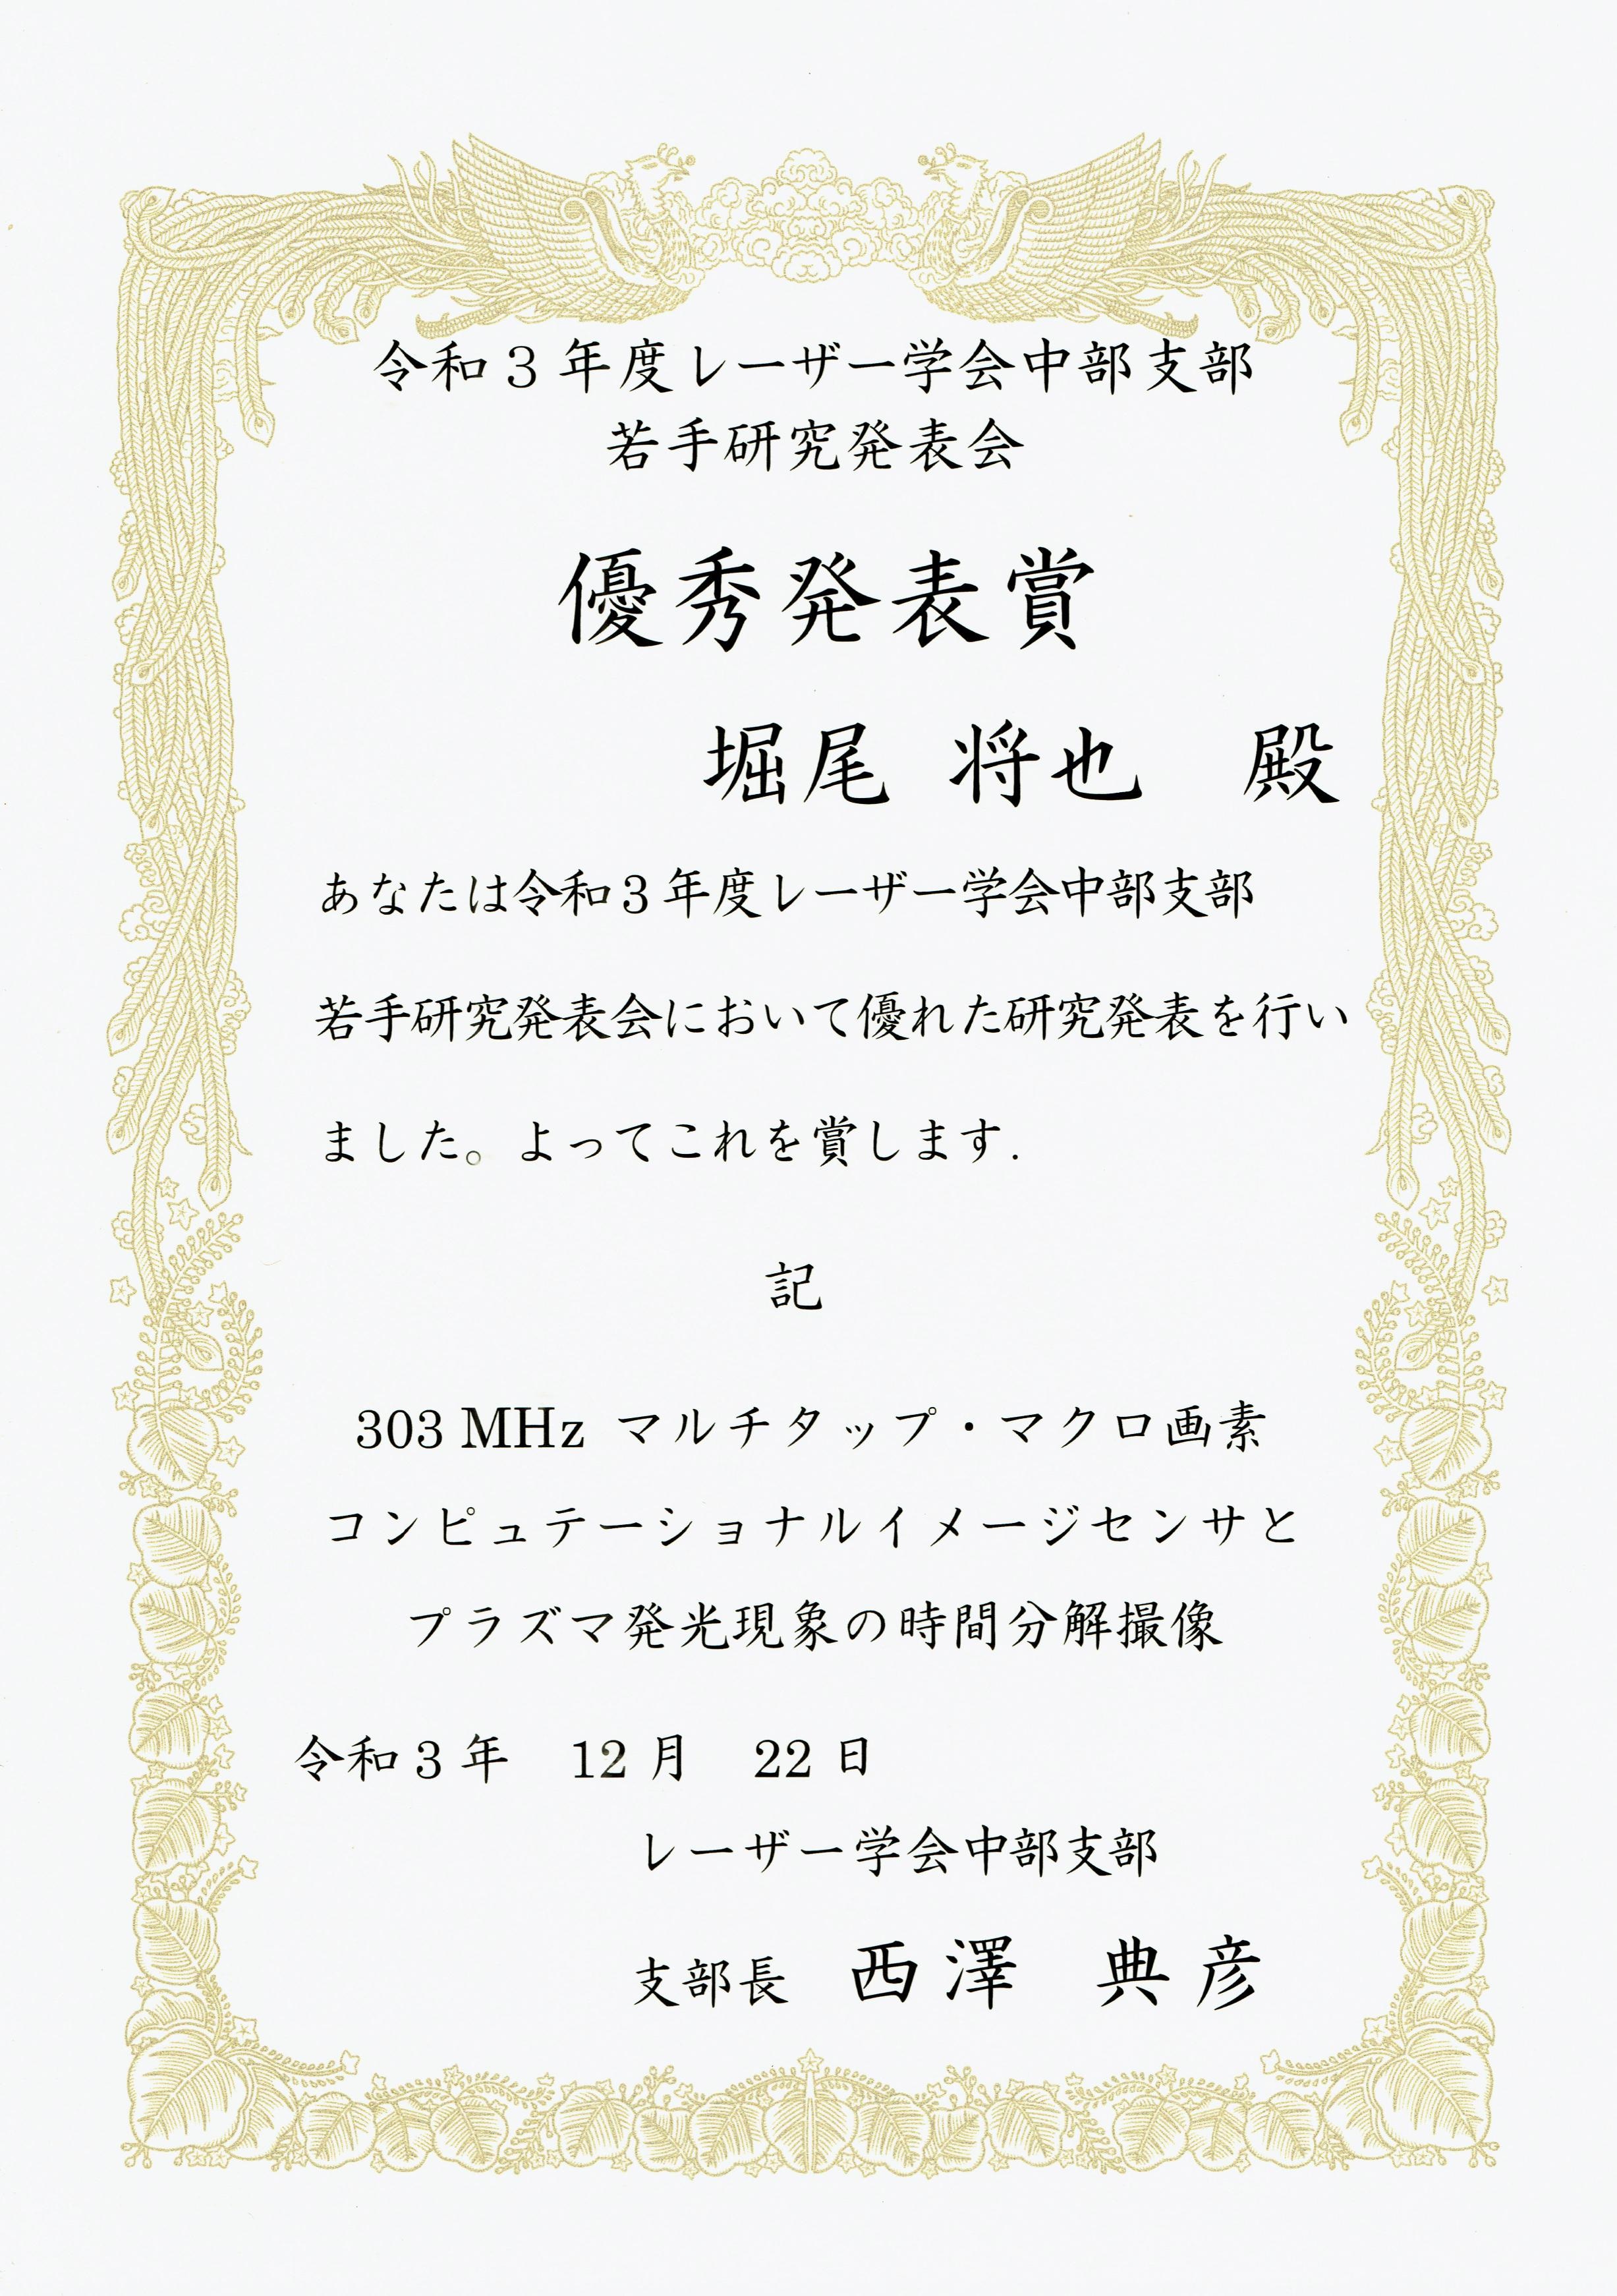 令和3年度レーザー学会中部支部
若手研究発表会
優秀発表賞
堀尾 将也 殿
あなたは令和3年度レーザー学会中部支部
若手研究発表会において優れた研究発表を行い
ました。よってこれを賞します.
記
303 MHz マルチタップ・マクロ画素
コンピュテーショナルイメージセンサと
プラズマ発光現象の時間分解撮像
令和3年 12月 22日
レーザー学会中部支部
支部長 西澤 典彦